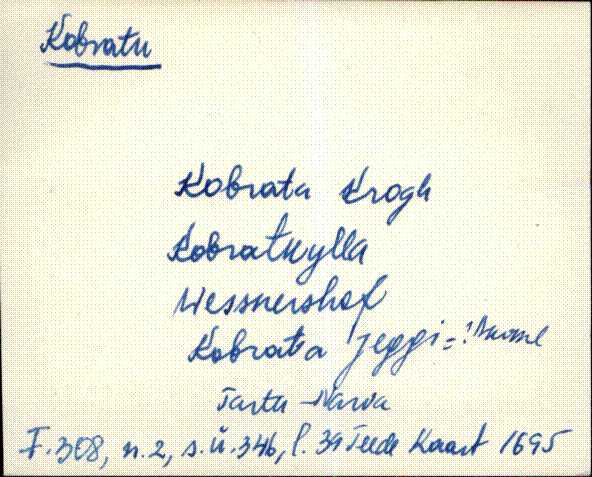 Kobratu
Kobrata Krogh
Kobratkylla
Wessnershof
Kobratta Jeggi =
Tartu - Narva
F. 308, n. 2, s. ü. 346, l. 39 Teede Kaart 1695